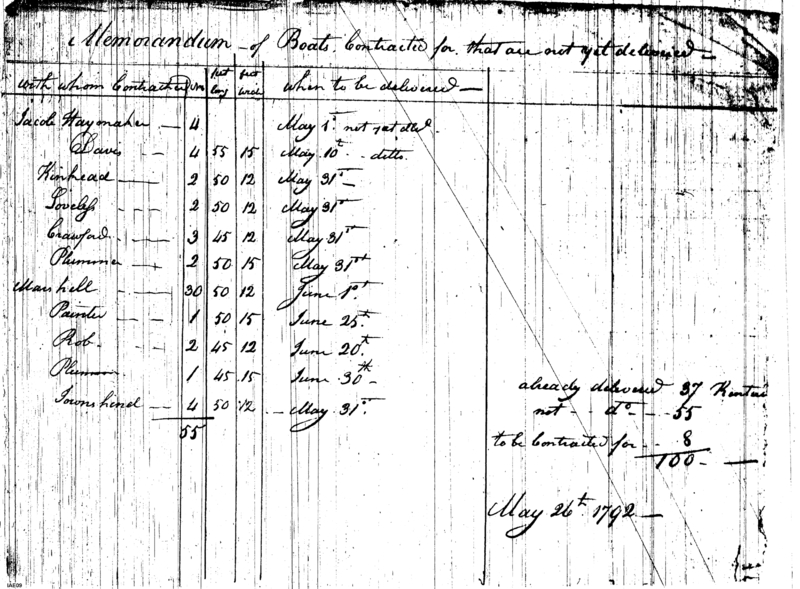 Memorandum of Boats Contracted for that are not yet delivered
with whom Contracted No feet long feet wide when to be delivered
Jacob Haymaker 4 May 1st not yet dld.
Davis 4 55 15 May 10th ditto.
Kinhead 2 50 12 May 31st
Loveless 2 50 12 May 31st
Crawford 3 45 12 May 31st
Plummer 2 50 15 May 31st
Marshell 30 50 12 June 1st
Painter 1 50 15 June 25th
Rob 2 45 12 June 20th
Plummer 1 45 15 June 30th
Townshend 4 50 12 May 31st
55
already delivered 37
not do 55
to be Contracted for 8
100
May 26th 1792